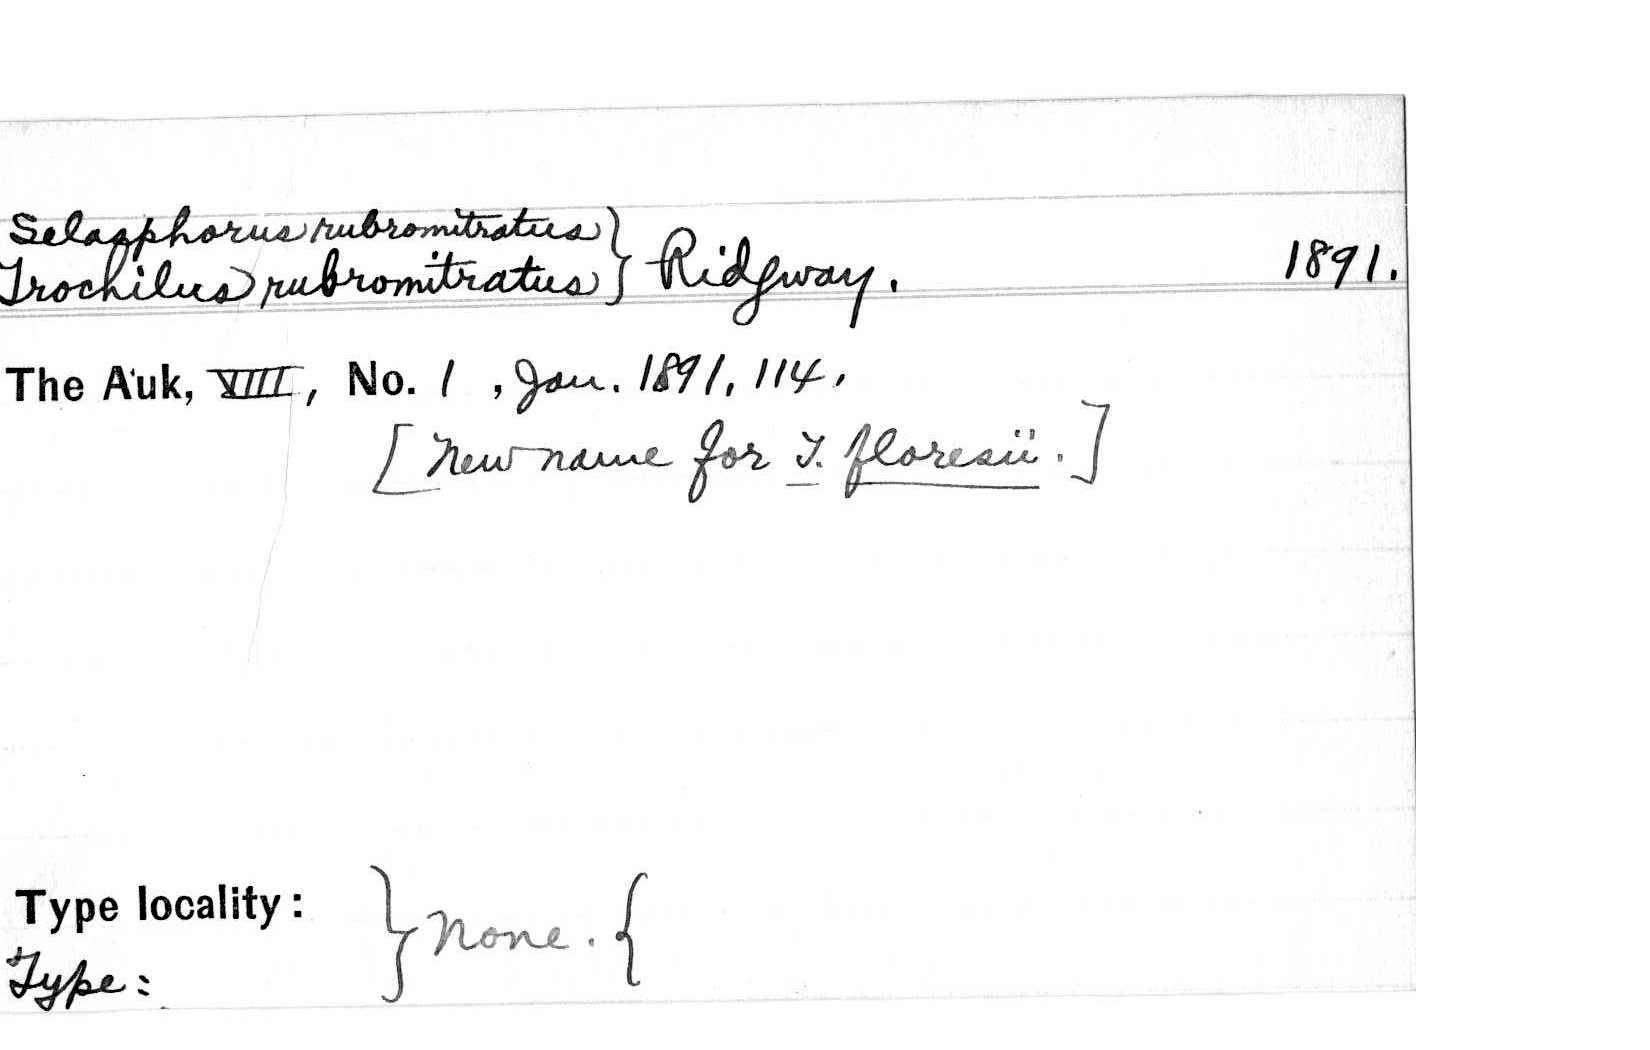 Selasphorus rubromitratus
Trochilus rubromitratus } Ridgway. 1891.
The Auk, VIII, No. 1, Jan. 1891, 114.
[New name for T. floresii.]
Type locality: } None. {
Type: